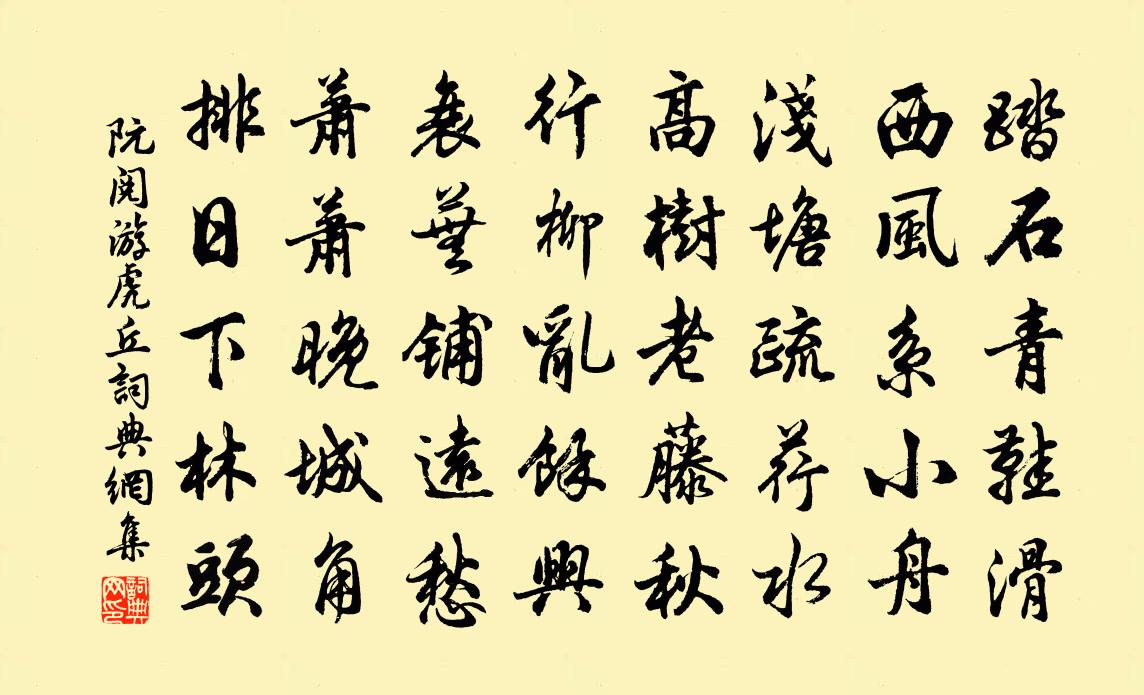 踏石青鞋滑
西風系小舟
淺塘疏荇水
高樹老藤秋
行柳亂餘興
衰蕪鋪遠愁
蕭蕭晚城角
排日下林頭
阮閱游虎丘詞典網集
詞典網印